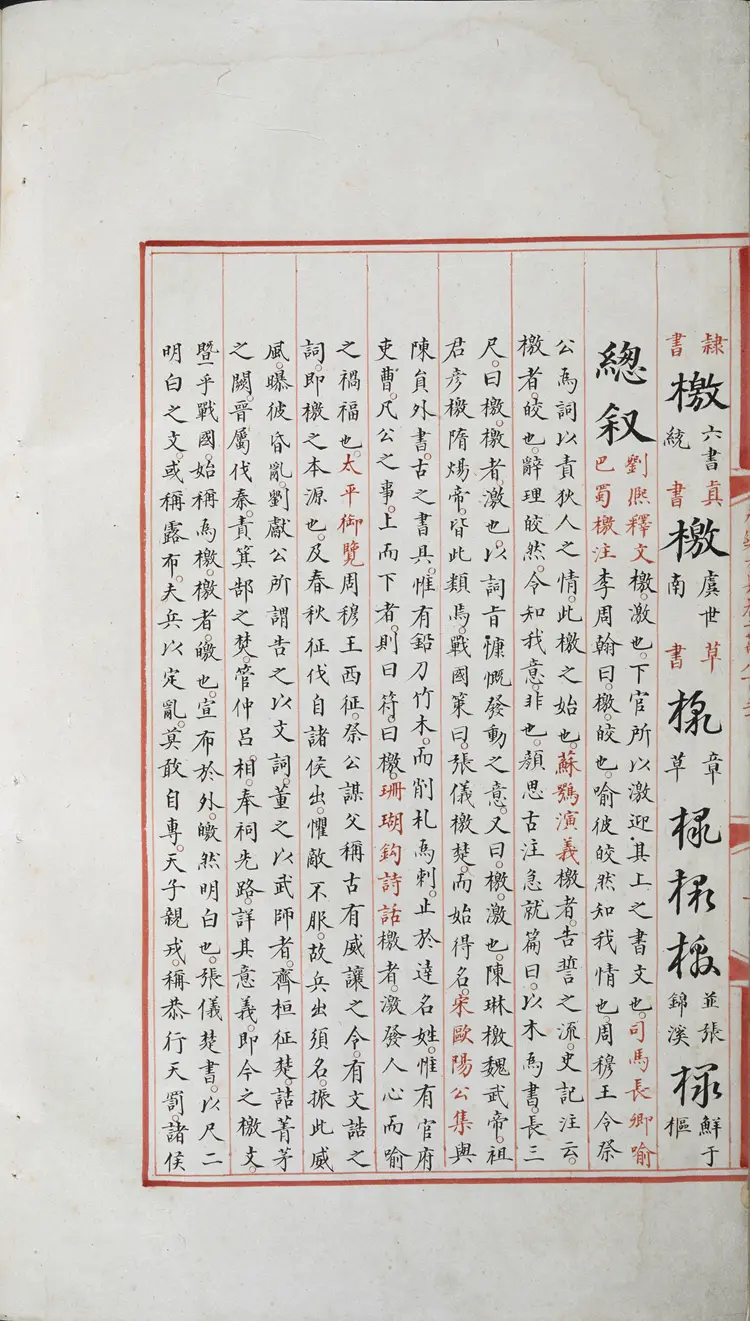 隸書檄六書統真書檄虞世南草書檄章草檄檄檄並張錦溪檄鮮于樞
總叙
劉熈釋文檄。激也。下官所以激迎其上之書文也。司馬長卿喻
巴蜀檄注李周翰曰。檄。皎也。喻彼皎然知我情也。周穆王令祭
公為詞以責狄人之情。此檄之始也。蘇鶚演義檄者。告誓之流。史記注云。
檄者。皎也。辭理皎然。令知我意。非也。顏思古注急就篇曰。以木為書。長三
尺。曰檄。檄者。激也。以詞㫖慷慨發動之意。又曰。檄。激也。陳琳檄魏武帝。祖
君彦檄隋煬帝。皆此類焉。戰國策曰。張儀檄楚。而始得名。宋歐陽公集與
陳貟外書。古之書具。惟有鉛刀竹木。而削札為刺。止於達名姓。惟有官府
吏曹。凡公之事。上而下者。則曰符。曰檄。珊瑚鈎詩話檄者。激發人心而喻
之禍福也。太平御覽周穆王西征。祭公謀父稱古有威讓之令。有文誥之
詞。即檄之本源也。及春秋征伐自諸侯出。懼敵不服。故兵出須名。振此威
風。曝彼昏亂。劉獻公所謂告之以文詞。董之以武師者。齊桓征楚。詰菁茅
之闕。晋厲伐秦。責箕郜之焚。管仲吕相。奉祠先路。詳其意義。即今之檄文。
暨乎戰國。始稱為檄。檄者。皦也。宣布於外。皦然明白也。張儀楚書。以尺二
明白之文。或稱露布。夫兵以定亂。莫敢自專。天子親戎。稱恭行天罰。諸侯